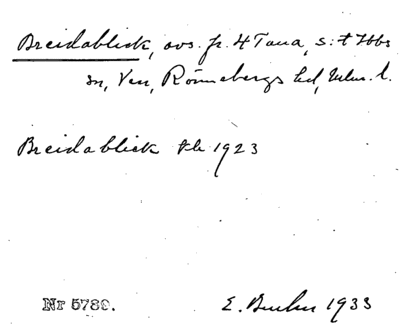 Breidablick, avs. fr. 4 Tuna, S:t Ibbs
sn, Ven, Rönnebergs hd, Mlm. l.
Breidablick Jb 1923
Nr 5789. E. 1933